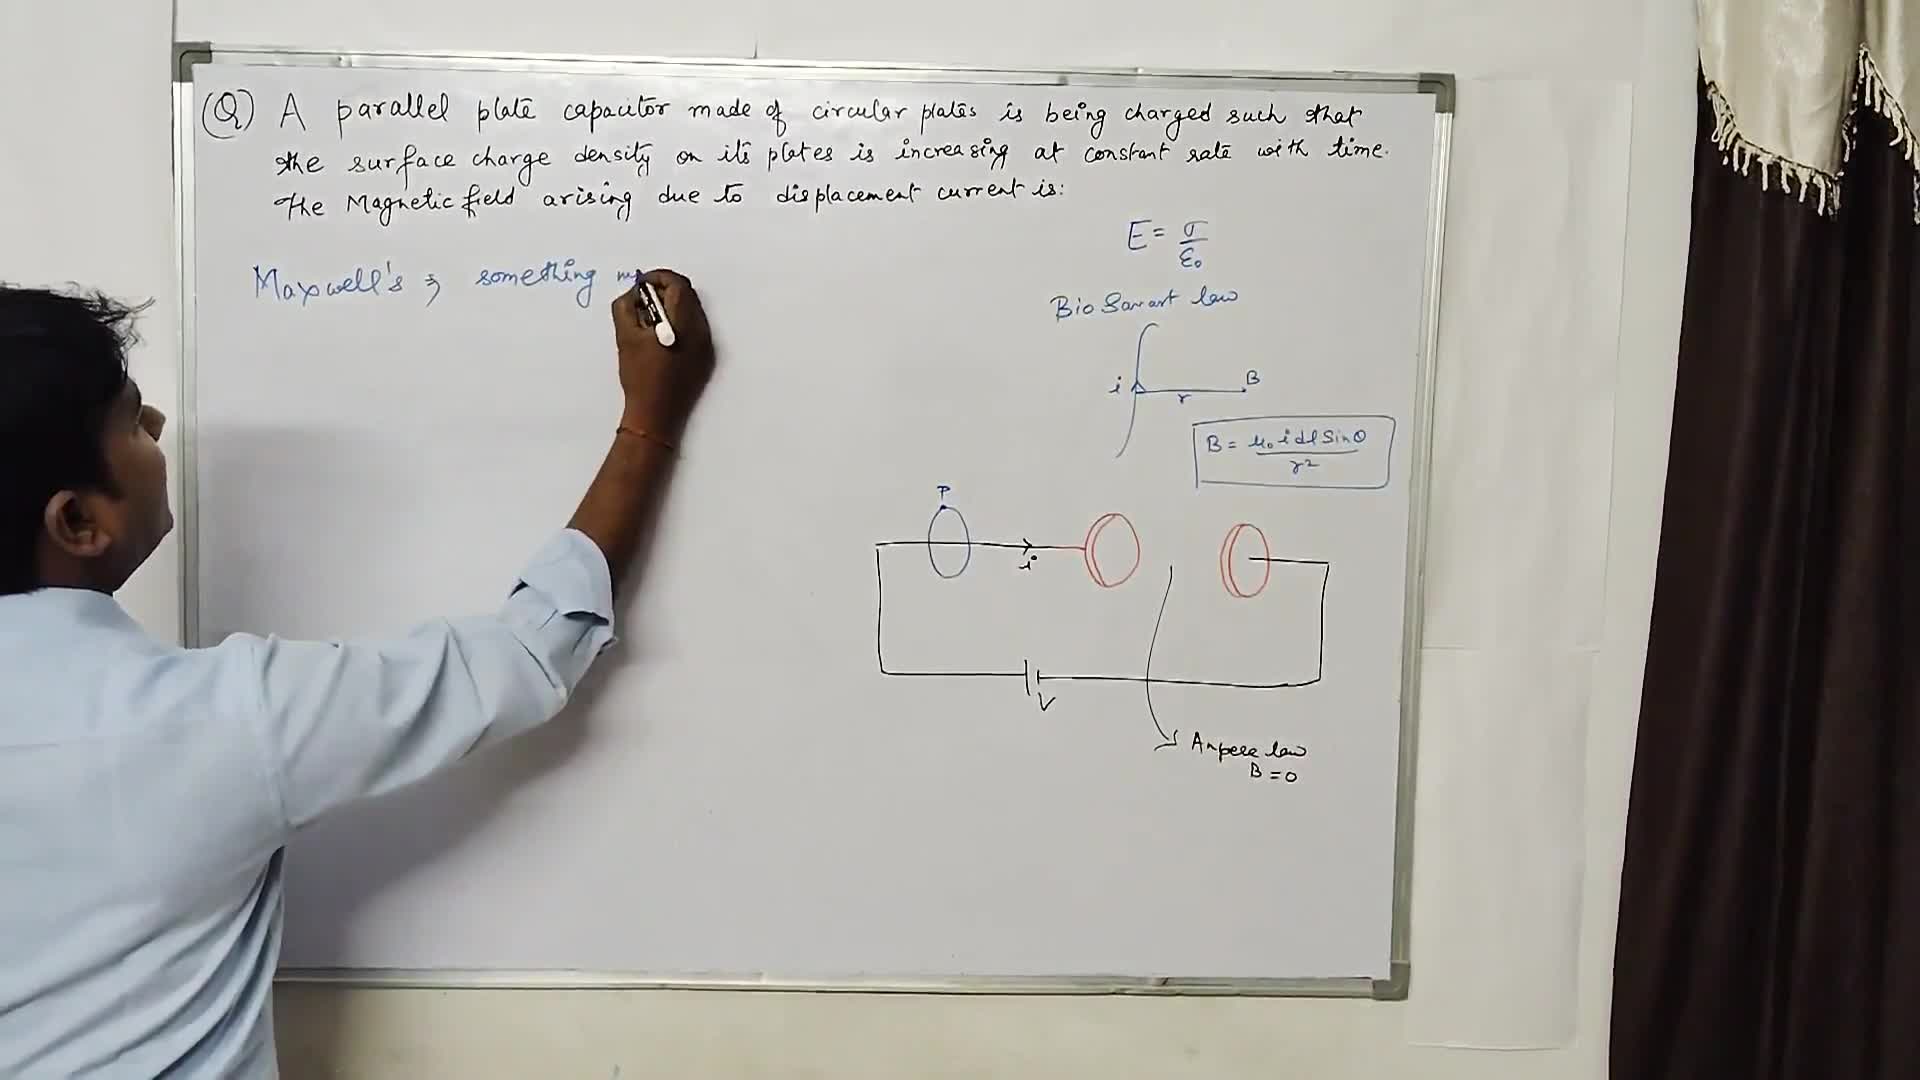 (Q) A parallel plate capacitor made of circular plates is being charged such that
the surface charge density on its plates is increasing at constant rate with time.
The Magnetic field arising due to displacement current is:
E = σ/ε₀
Maxwell's → something
Bio Savart law
i
r
B
B = μ₀ i dl Sinθ / r²
P
i
V
Ampere law
B = 0